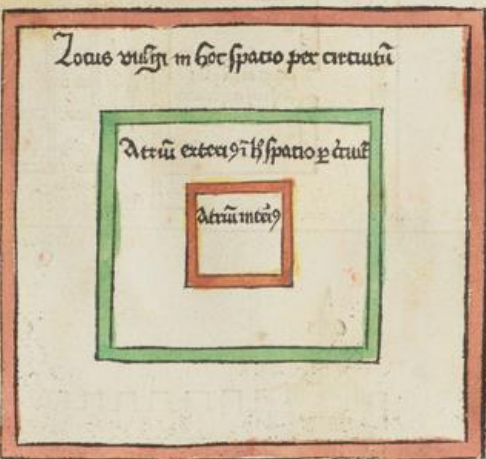 Locus vulgi in hoc spatio per circuitū
Atriū exteri9 ī h spatio ꝑ
Atriū interi9